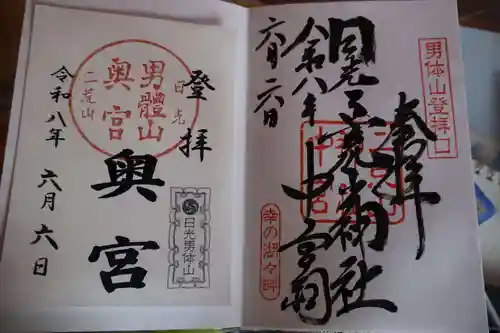 男体山登拝口
奉拝
日光二荒山神社
中宮祠
令和八年
六月六日
幸の湖々畔
登拝
日光
男體山
奥宮
二荒山
奥宮
日光男体山
令和八年 六月六日